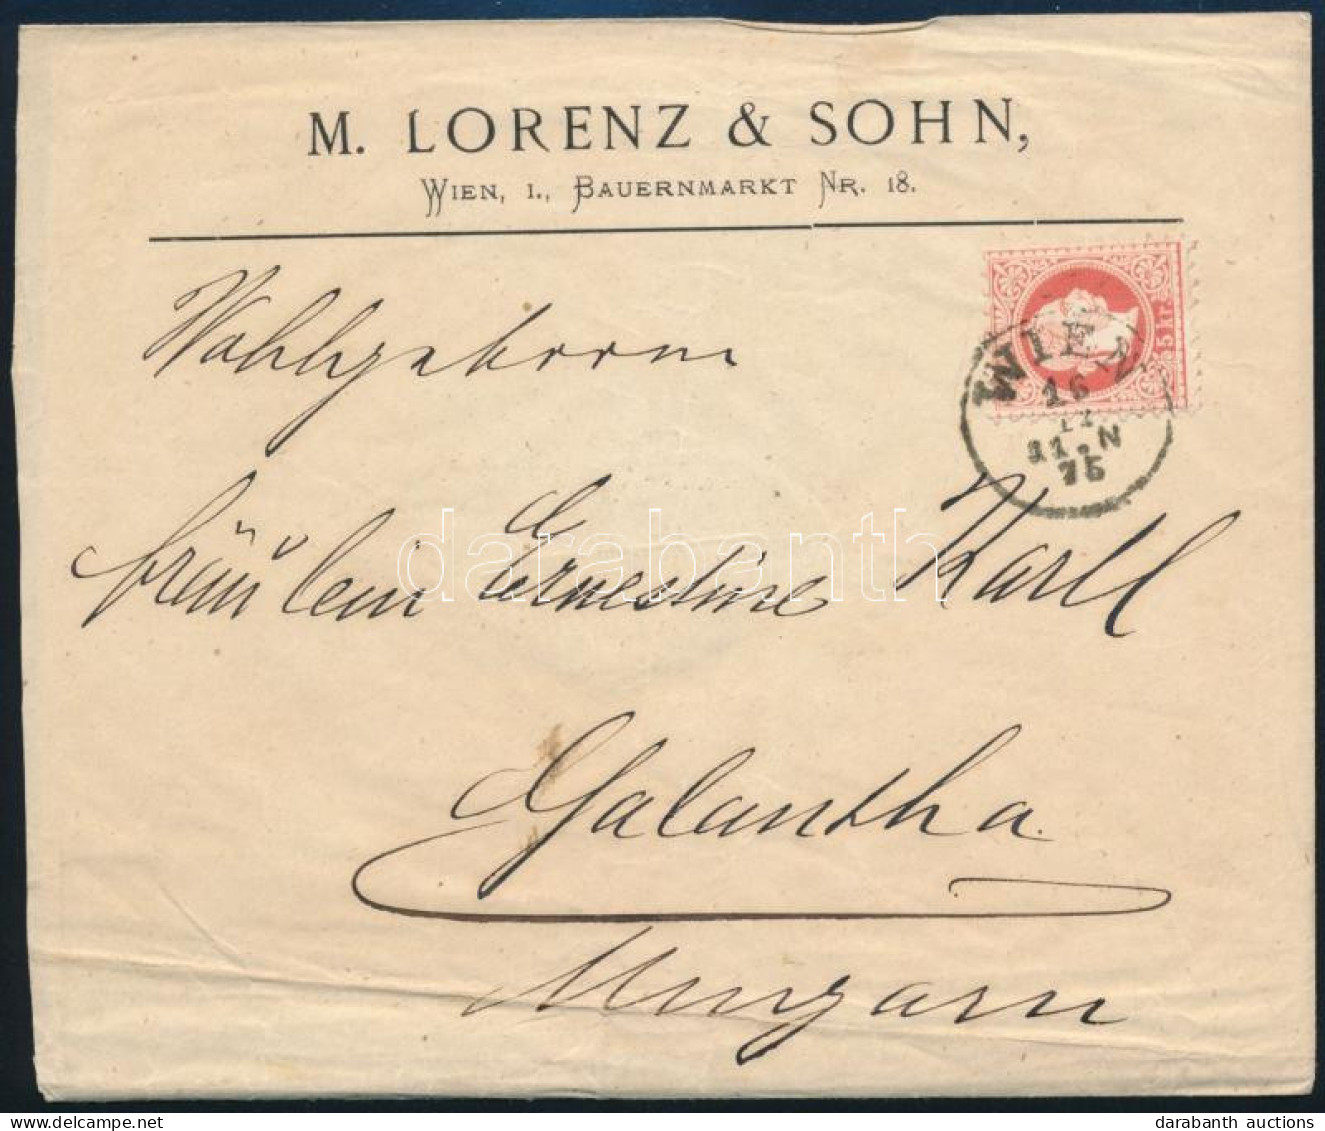 M. LORENZ & SOHN,
WIEN, I., BAUERNMARKT NR. 18.
5 kr.
WIEN
16
11.N
75
Wohlgeboren
Fräulein Ernestine Karll
darabanth
Galantha
Ungarn
darabanth auctions